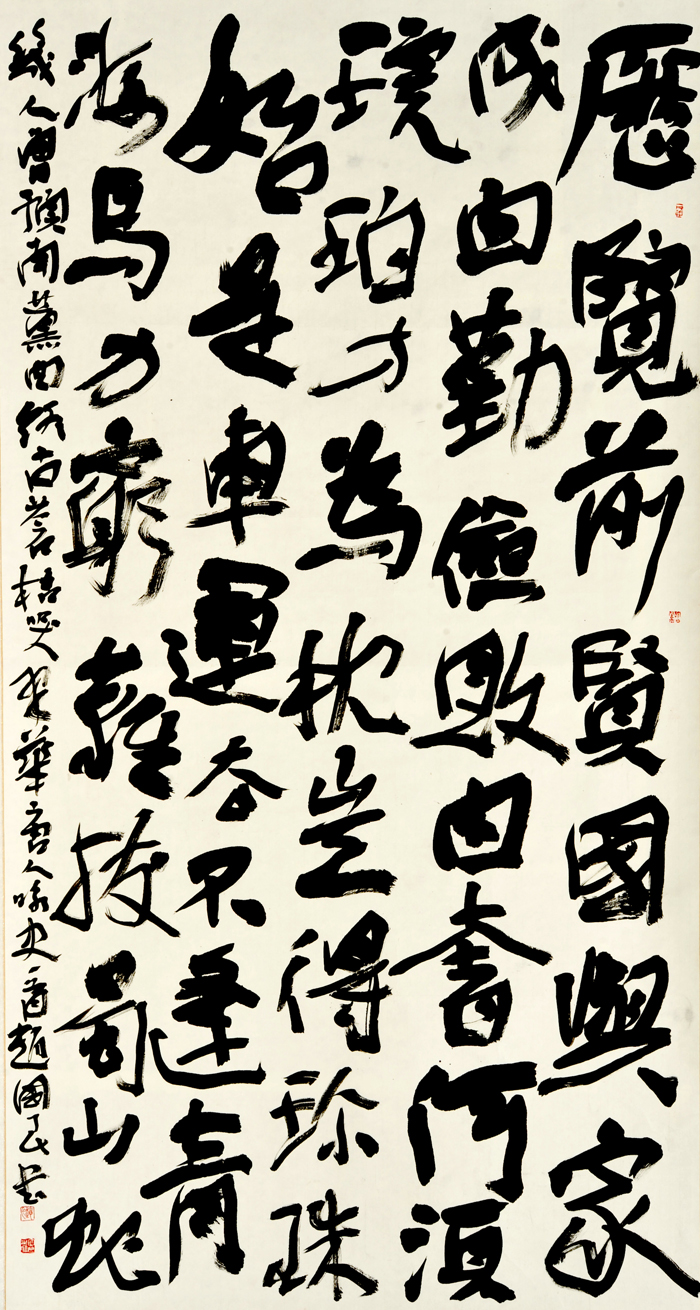 歷覽前賢國與家
成由勤儉敗由奢何須
琥珀方為枕豈得珍珠
始是車運去不逢青
海馬力窮難拔蜀山蛇
幾人曾預南薰曲終古蒼梧哭翠華唐人咏史一首趙國書